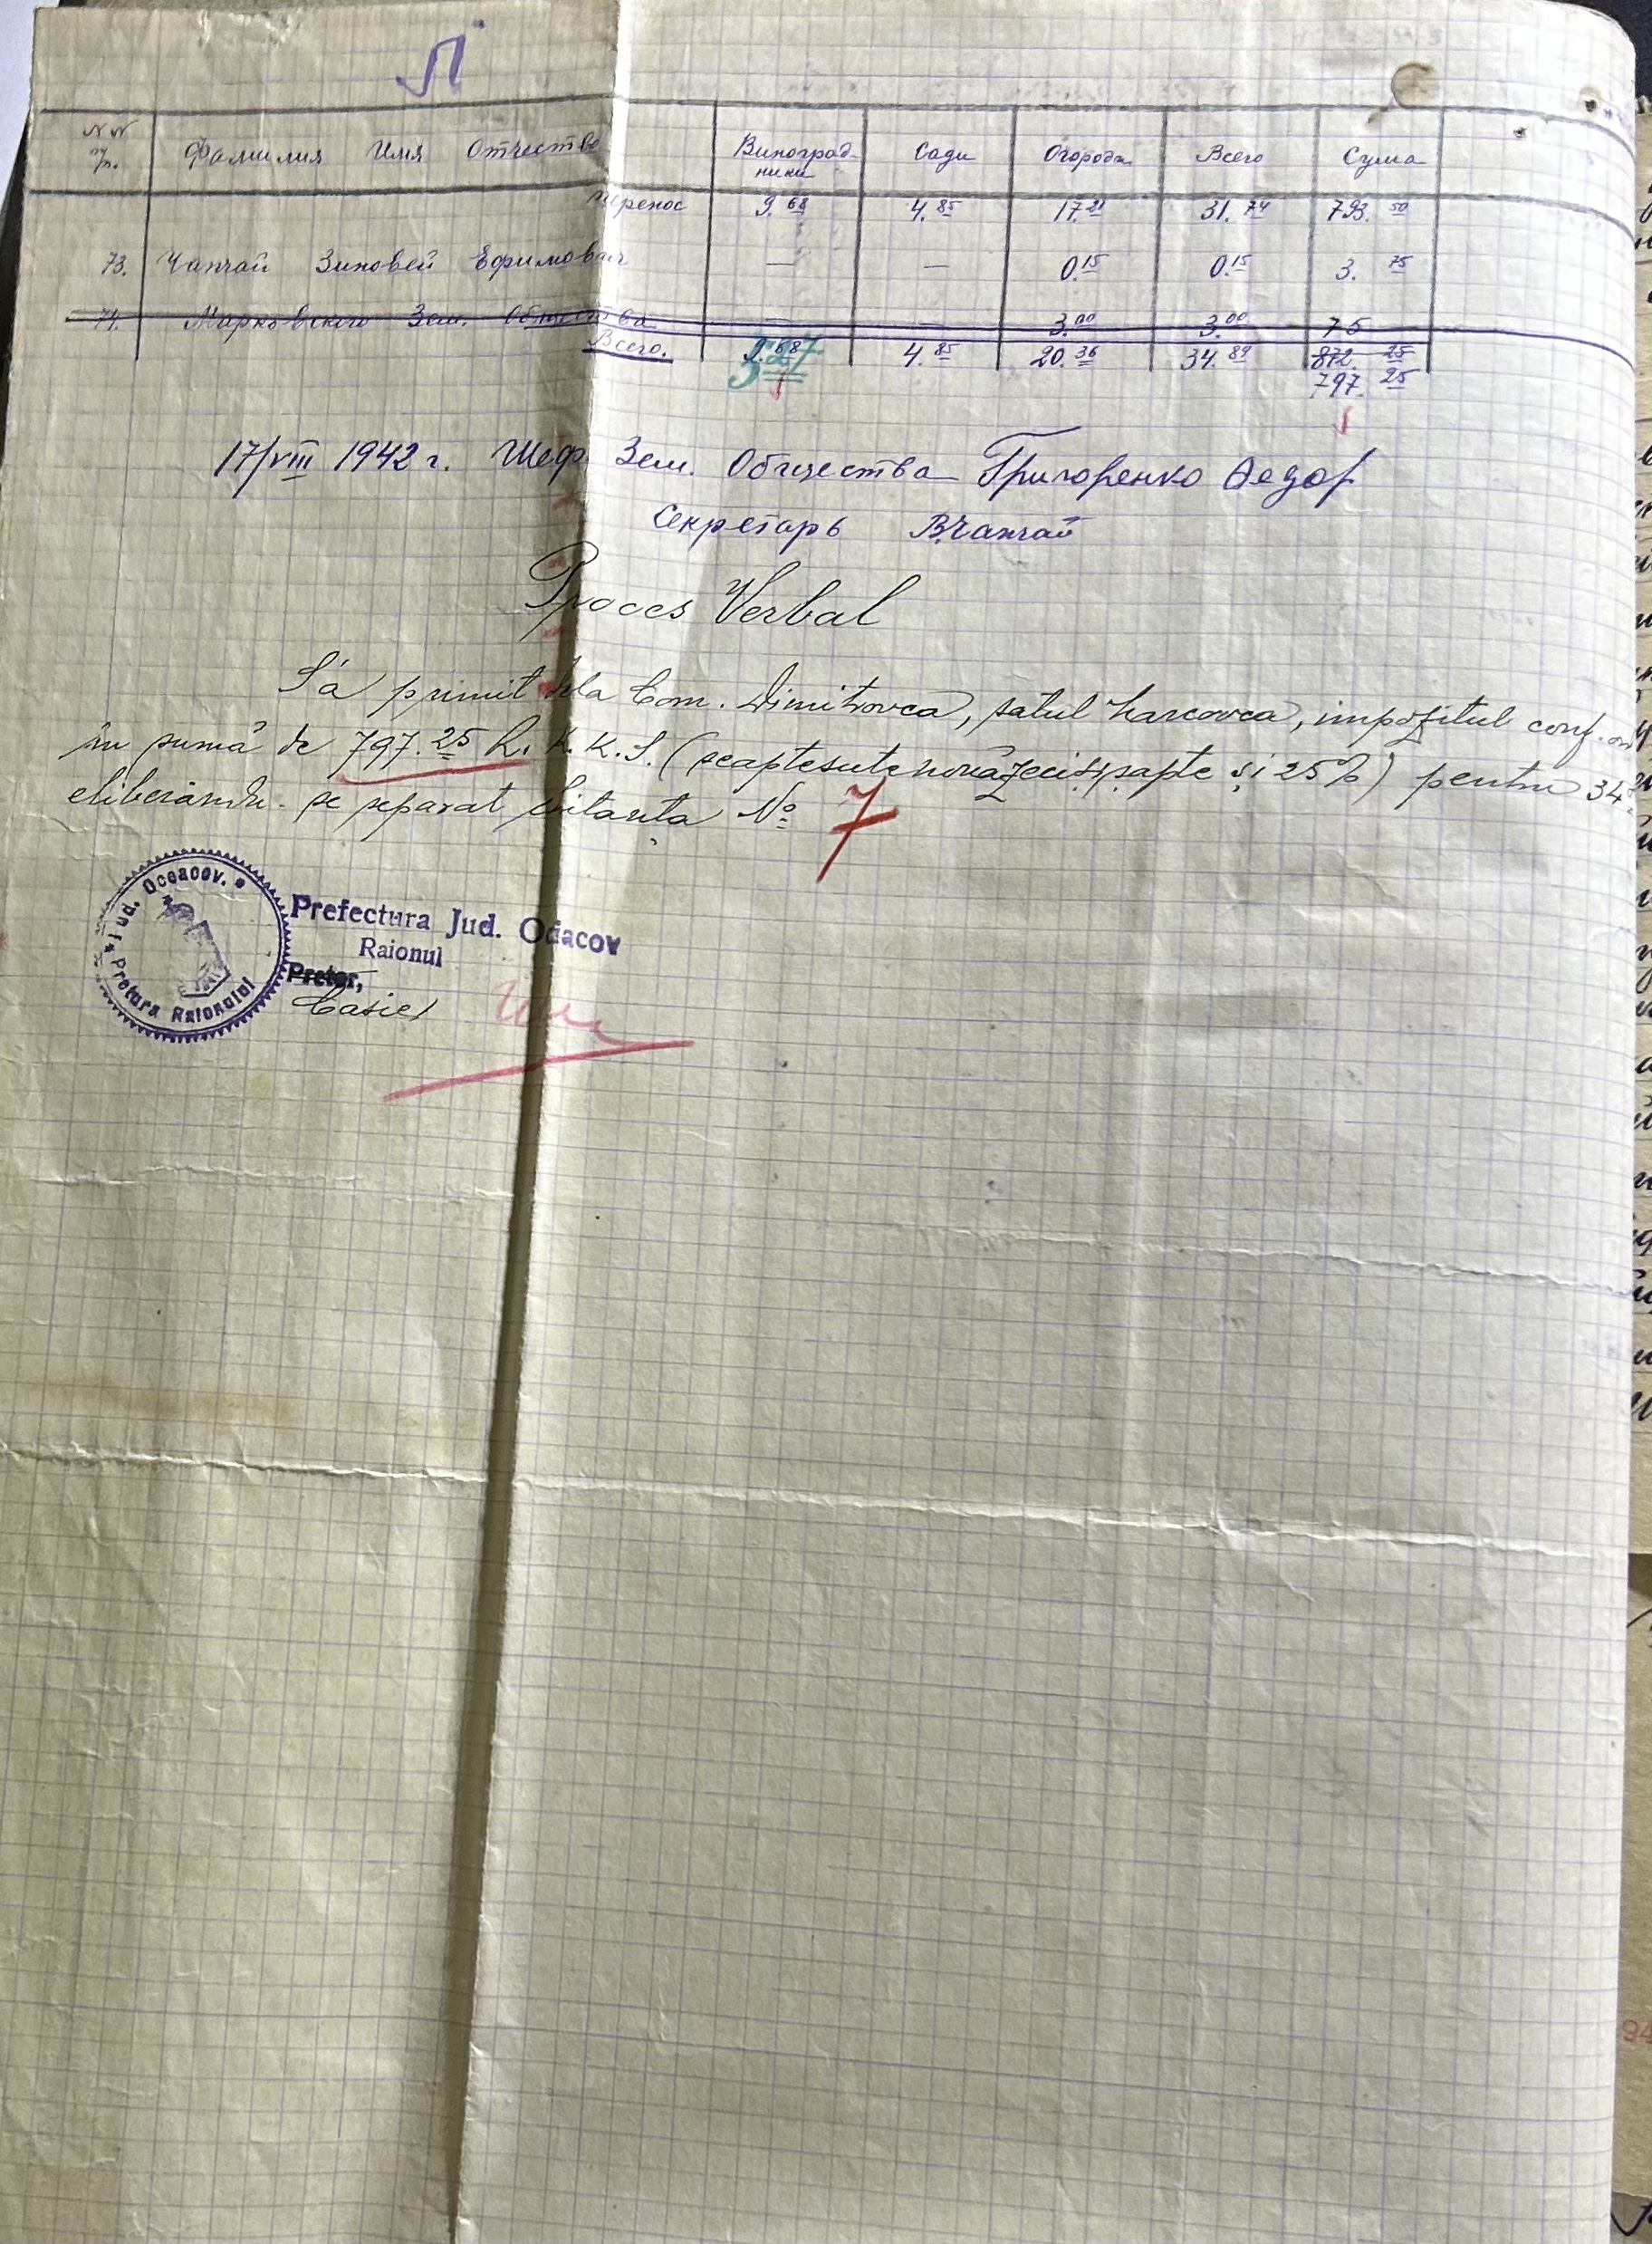 Л
N N п/п. Фамилия Имя Отчество Виноградники Сади Огорода Всего Сума
перенос 9.68 4.85 17.21 31.74 793.50
73. Чапчай Зиновей Ефимович — — 0.15 0.15 3.75
74. Марковского Зем. Общества — — 3.00 3.00 75
Всего. 9.68 4.85 20.36 34.89 872.25
797.25
17/VIII 1942 г. Шеф. Зем. Общества Григоренко Федор
Секретарь В.Чапчай
Proces Verbal
S'a primit dela Com. Dimitrovca, satul Marcovca, impozitul conf.
în sumă de 797.25 R.K.K.S. (șeaptesutenouăzecișișapte și 25%) pentru 34
eliberându-se separat chitanța No 7
Jud. Oceacov.
Pretura Raionului
Prefectura Jud. Oceacov
Raionul
Pretor,
Casier